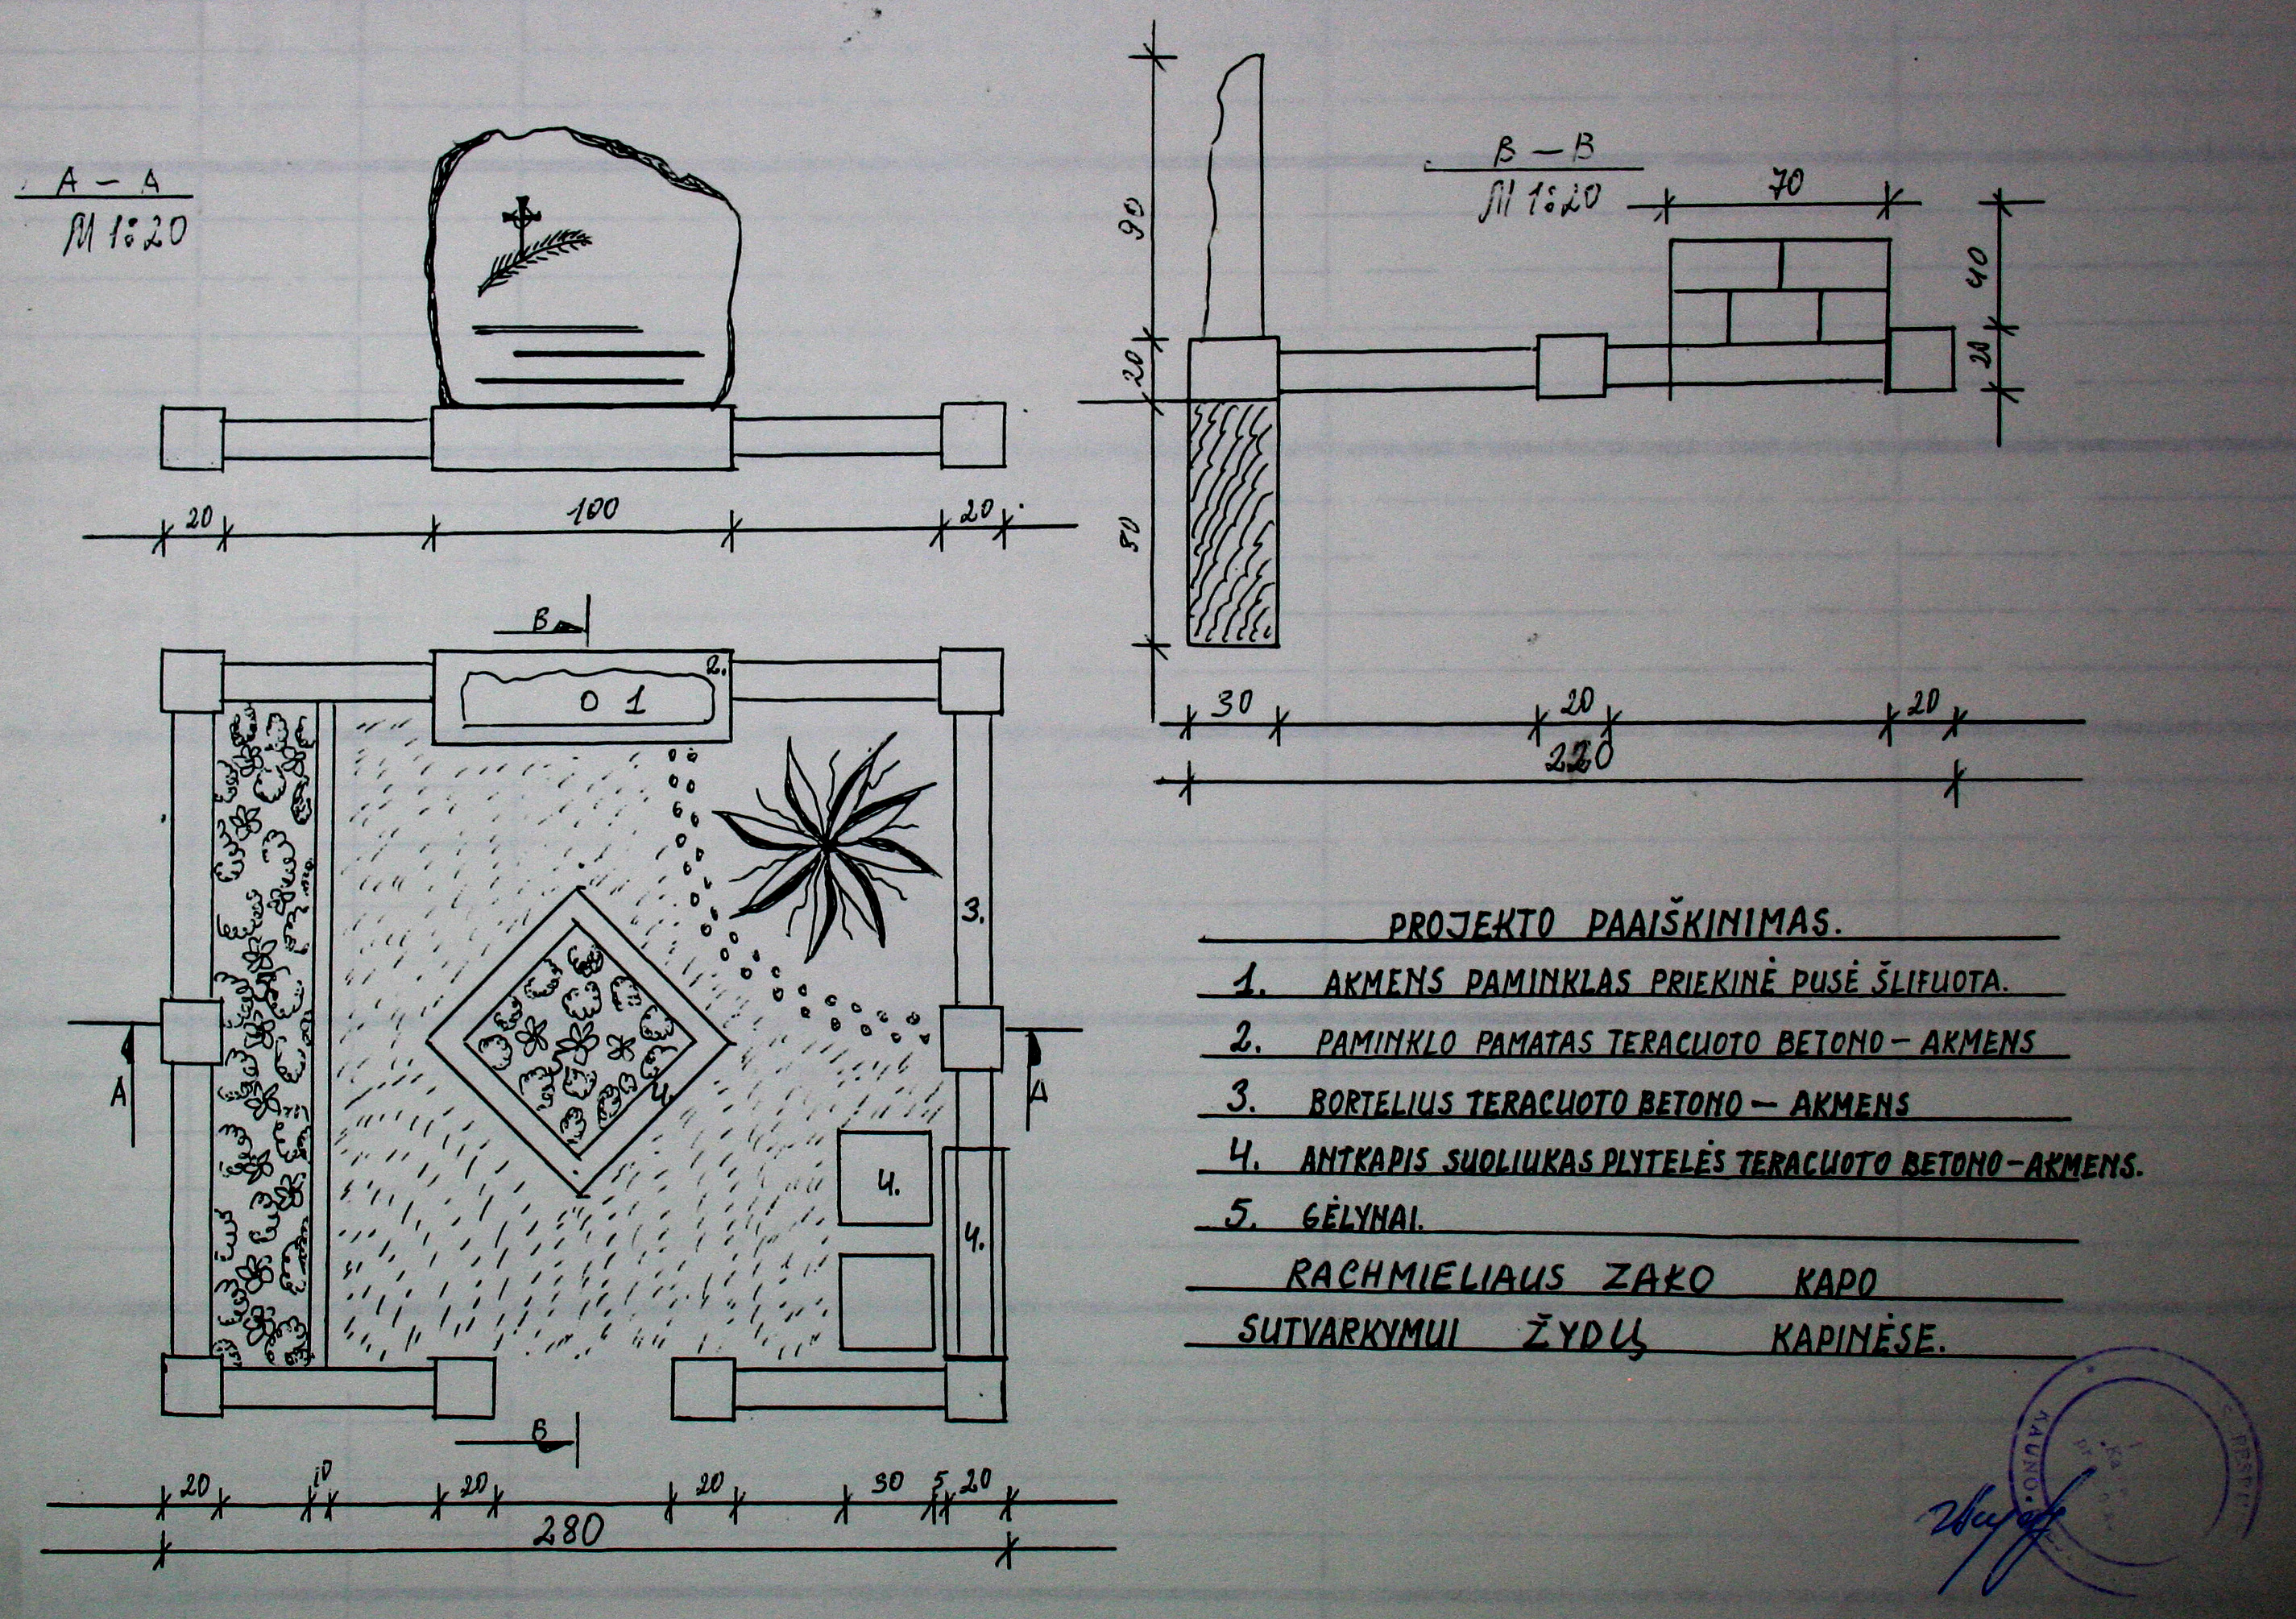 A – A
M 1:20
20 100 20
B – B
M 1:20
70
90
20
80
40
20
30 20 20
220
B
2.
O 1
3.
A A
4.
4.
B
20 10 20 20 30 5 20
280
PROJEKTO PAAIŠKINIMAS.
1. AKMENS PAMINKLAS PRIEKINĖ PUSĖ ŠLIFUOTA.
2. PAMINKLO PAMATAS TERACUOTO BETONO – AKMENS
3. BORTELIUS TERACUOTO BETONO – AKMENS
4. ANTKAPIS SUOLIUKAS PLYTELĖS TERACUOTO BETONO–AKMENS.
5. GĖLYNAI.
RACHMIELIAUS ZAKO KAPO
SUTVARKYMUI ŽYDŲ KAPINĖSE.
KAUNO